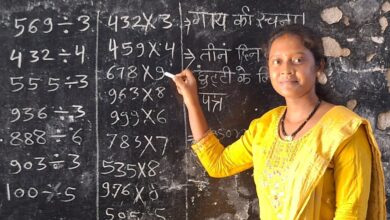 569÷3
432÷4
555÷3
936÷3
888÷6
903÷3
100÷5
432×3
459×4
678×9
963×8
999×6
783×7
535×8
976×8
595×5
गाय की रचना
तीन दिन
छुट्टी के लि
पत्र